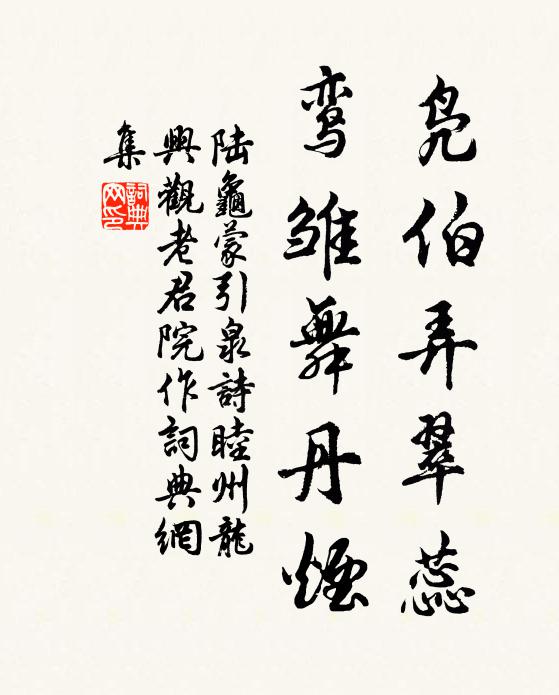 凫伯弄翠蕊
鸾雏舞丹煙
陆龜蒙引泉詩睦州龍
興觀老君院作詞典網
集
詞典
网印